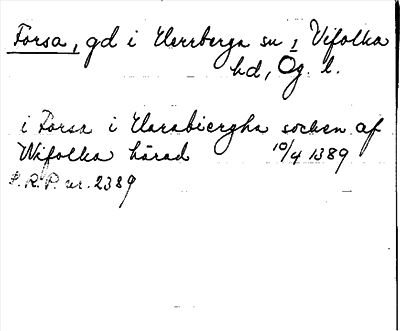 Forsa, gd i Herrberga sn, Vifolka
hd, Ög. l.
i Forsa i Harabiergha socken af
Wifolka härad 10/4 1389
S.R.P. nr. 2389